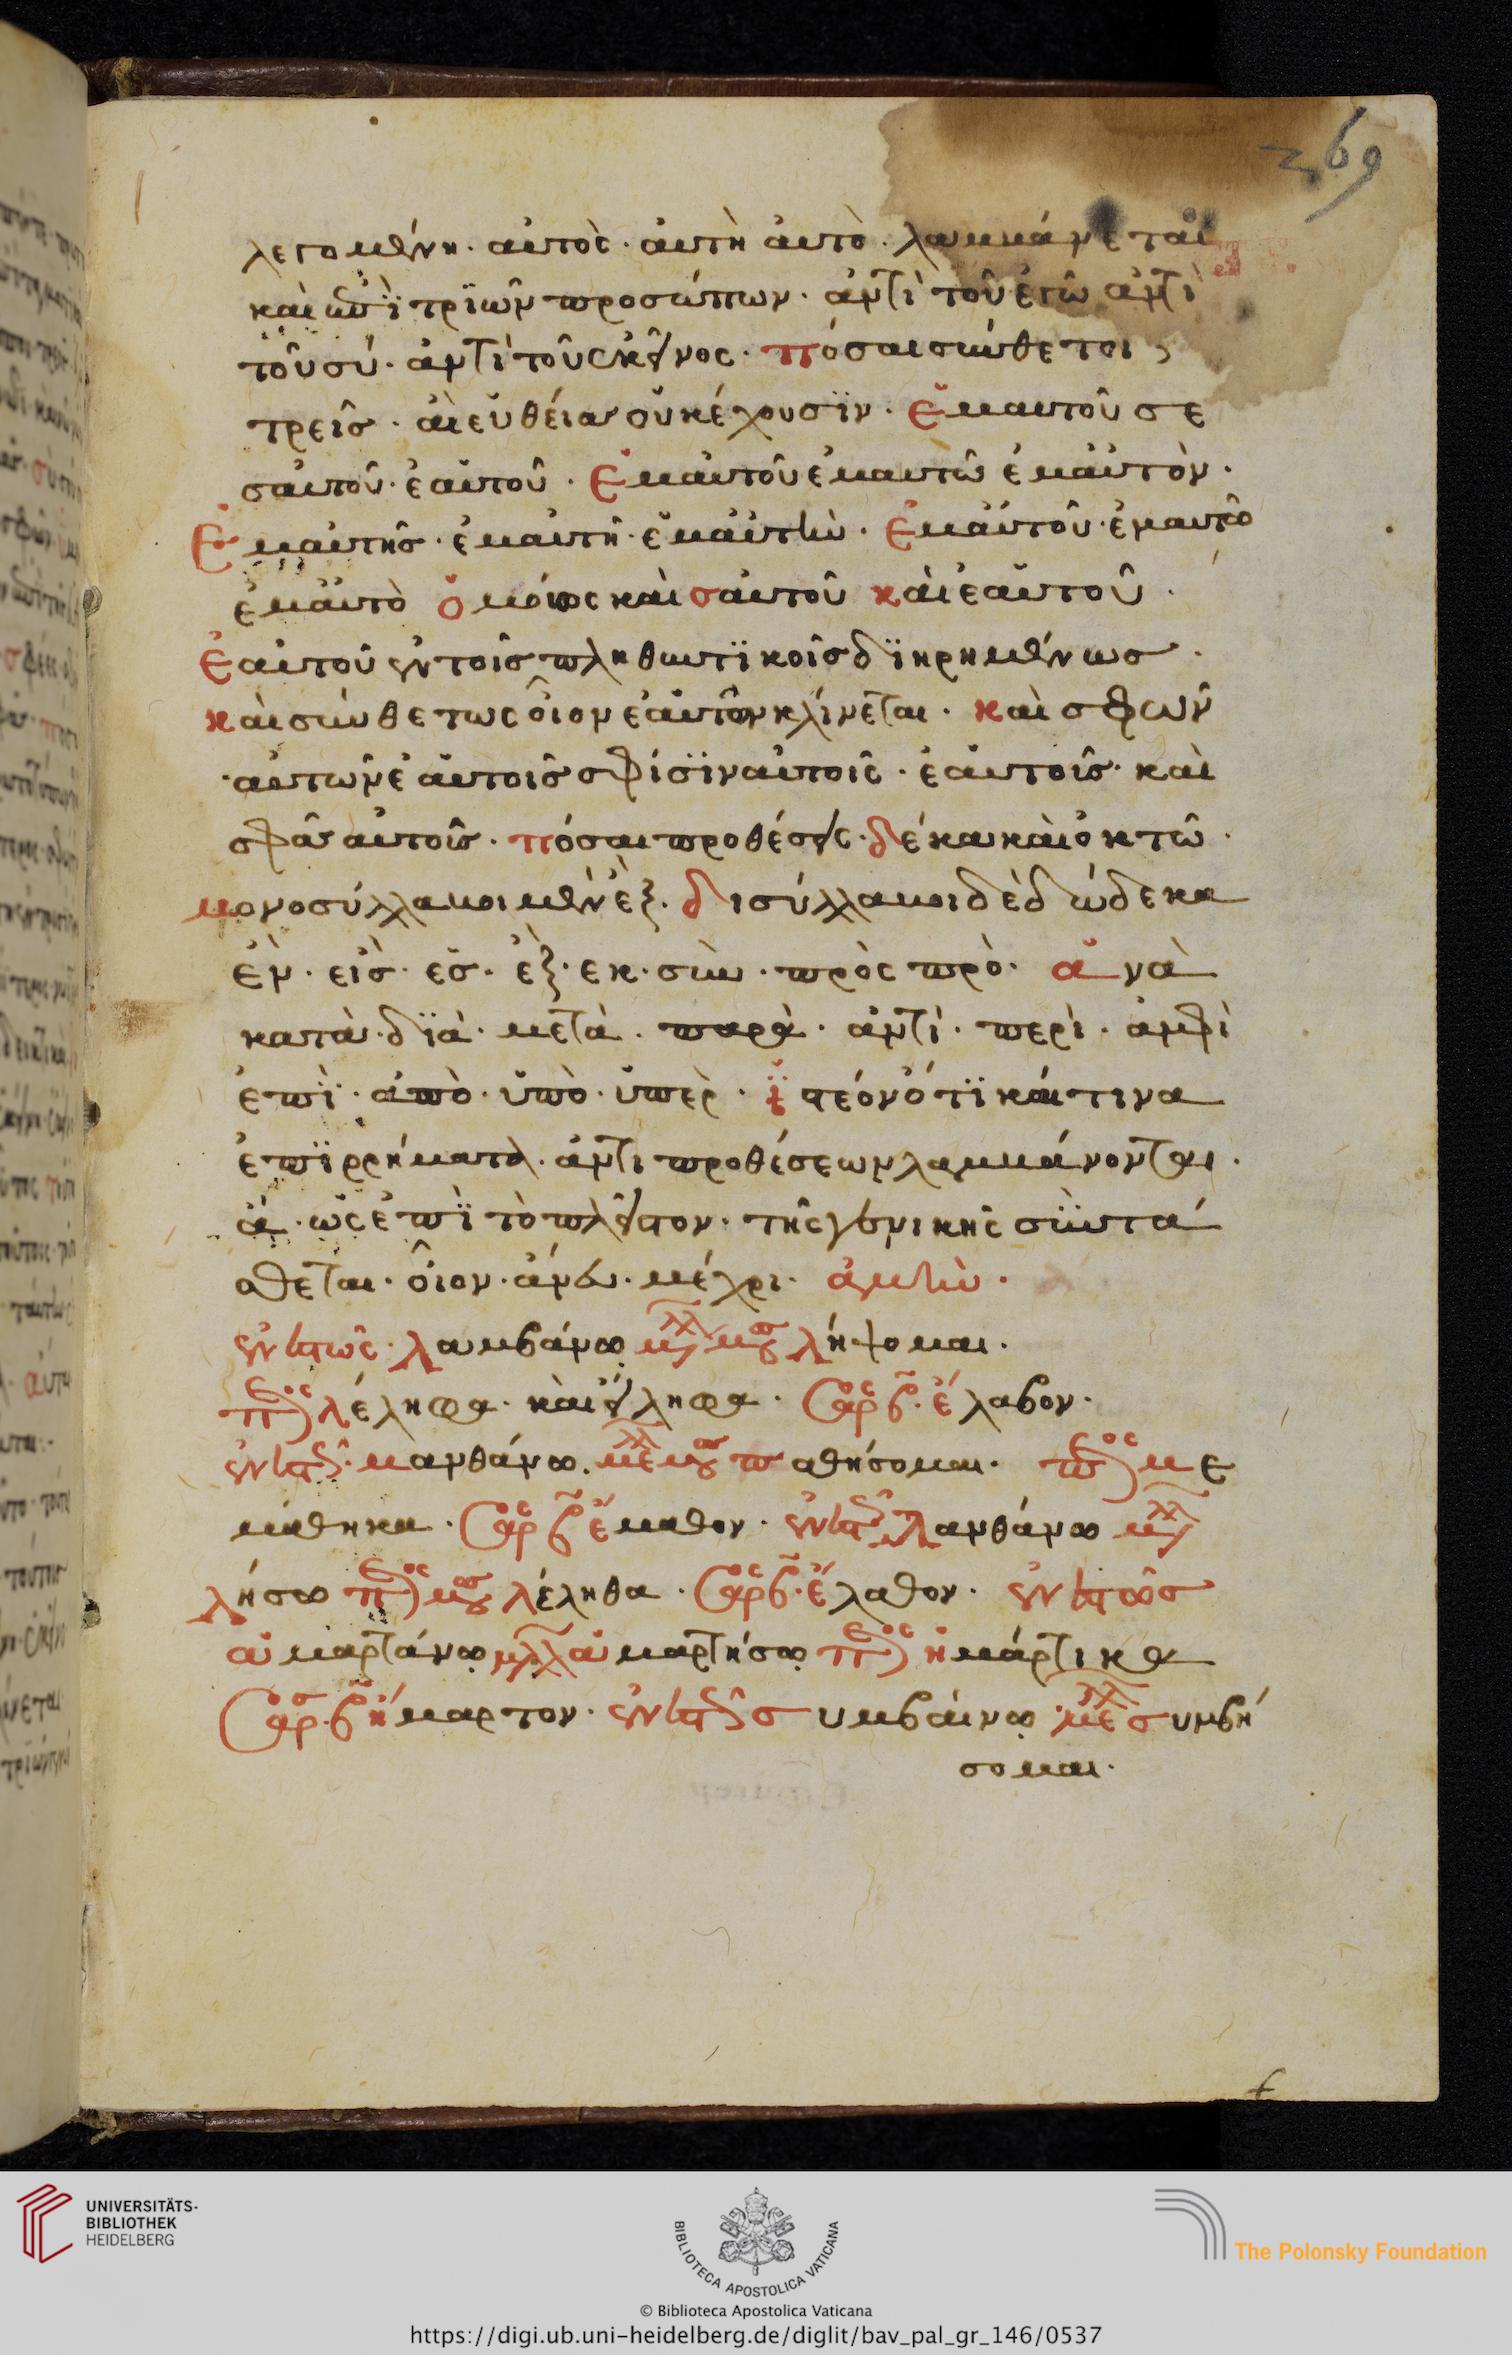 369
λεγομένη · αὐτὸς · ἀυτὴ ἀυτὸ · λαμμάνεται
καὶ ἐπῒ τρϊῶν προσώπων · ἀντὶ τοῦ ἐγῶ ἀντὶ
τοῦ σύ · ἀντὶ τοῦ ἐκεῖνος · πόσαι σύνθετοι
τρεῖσ · ἁι εὐθεία οὐκ έχουσϊν · Εμαυτοῦ σε
σαυτοῦ · ἑαυτοῦ · Εμαὐτοῦ ἐμαυτῶ ἐμαὐτὸν ·
Εμαυτησ · ἐμαυτῆ · εμαὐτὴν · Εμαὐτοῦ · ἐμαυτῶ
ἐμαὐτὸ ὁμοίως καὶ σαυτοῦ καὶ ἑαυτοῦ ·
Εαυτοῦ ἐν τοῖσ πληθυντϊκοῖσ δϊηρημένωσ ·
καὶ σύνθετως οἷον ἑαὐτῶν κλίνεται · καὶ σφῶν
αὐτῶν ἑαὐτοῖσ σφίσϊν αὐτοῖς · ἑαὐτοῖσ · καὶ
σφᾶσ αὐτοῖσ · πόσαι προθέσεις · δέκα καὶ ὀκτῶ ·
μονοσύλλαμοι μὲν ἓξ · δισύλλαμοι δὲ δώδεκα
ἐν · εἰσ · εσ · ἐξ · εκ · σὺν · πρὸς πρὸ · ἀνὰ
κατὰ · δϊὰ · μετὰ · παρὰ · ἀντὶ · περὶ · ἀμφὶ
ἐπῒ · ἀπὸ · ὑπὸ · ὑπὲρ · ϊστέον ὅτϊ κάι τινα
ἐπϊρρήματα · ἀντι προθέσεων λαμμάνονται ·
ἁ · ὡς ἐπῒ τὸ πλεῖστον · τῆς γενικῆς σϋντά
σθεται · οἷον · ἄνευ · μέχρι · ἀμὴν ·
ἐνεστῶς · λαμβάνω μλλ μσ λήψομαι ·
πς λέληφα · καὶ εἴληφα · ἀορς β · έλαβον ·
ἐνεστς · μανθάνω · μελλ μσ παθήσομαι · πς με
μάθηκα · ἀορς β έμαθον · ἐνεστς λανθάνω μλλ
λήσω πς μσ λέληθα · ἀορς β · έλαθον · ἐνεστῶσ
ἁμαρτάνω μλλ ἁμαρτήσω πς ἡμάρτικα
ἀορσ · β ήμαρτον · ἐνεστς συμβάινω · μελλ συμβή
σομαι ·
UNIVERSITÄTS-
BIBLIOTHEK
HEIDELBERG
BIBLIOTECA APOSTOLICA VATICANA
The Polonsky Foundation
© Biblioteca Apostolica Vaticana
https://digi.ub.uni-heidelberg.de/diglit/bav_pal_gr_146/0537